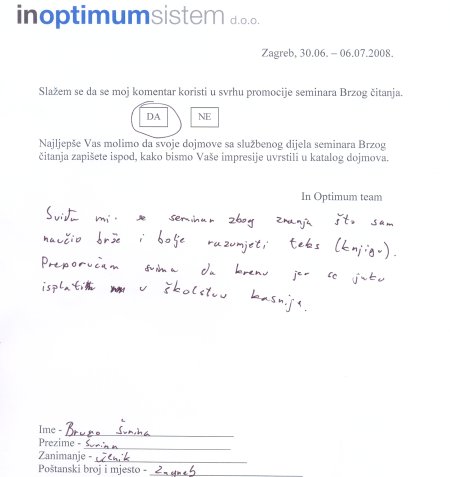 inoptimumsistem d.o.o.
Zagreb, 30.06. – 06.07.2008.
Slažem se da se moj komentar koristi u svrhu promocije seminara Brzog čitanja.
DA NE
Najljepše Vas molimo da svoje dojmove sa službenog dijela seminara Brzog
čitanja zapišete ispod, kako bismo Vaše impresije uvrstili u katalog dojmova.
In Optimum team
mi se seminar zbog znanja što sam
naučio brže i bolje razumjeti teks (knjigu).
Preporučam svima da krenu jer se
u školstvu kasnije.
Ime - Bruno
Prezime -
Zanimanje - učenik
Poštanski broj i mjesto - Zagreb